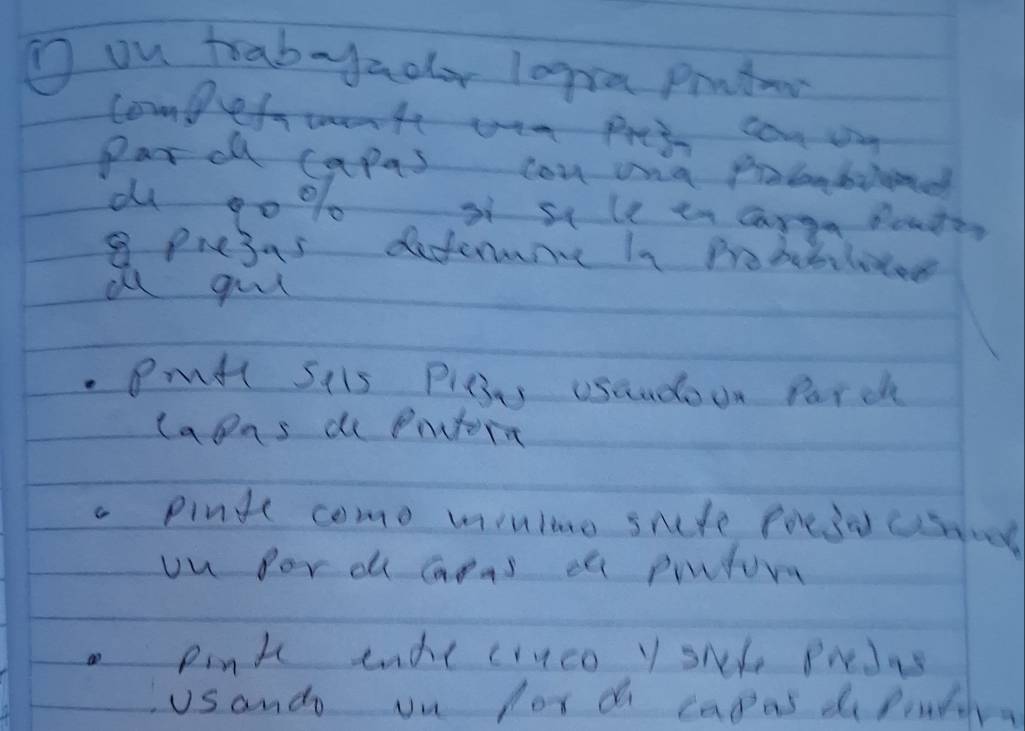 1) un trabajador logra pintar
completamente una pieza con un
par de capas con una probabilidad
de 90% si se le encarga pintar
8 piezas determine la probabilidad
de que
• pinte seis piezas usando un par de
capas de pintura
• pinte como minimo siete piezas usando
un par de capas de pintura
• pinte entre cinco y siete piezas
usando un par de capas de pintura